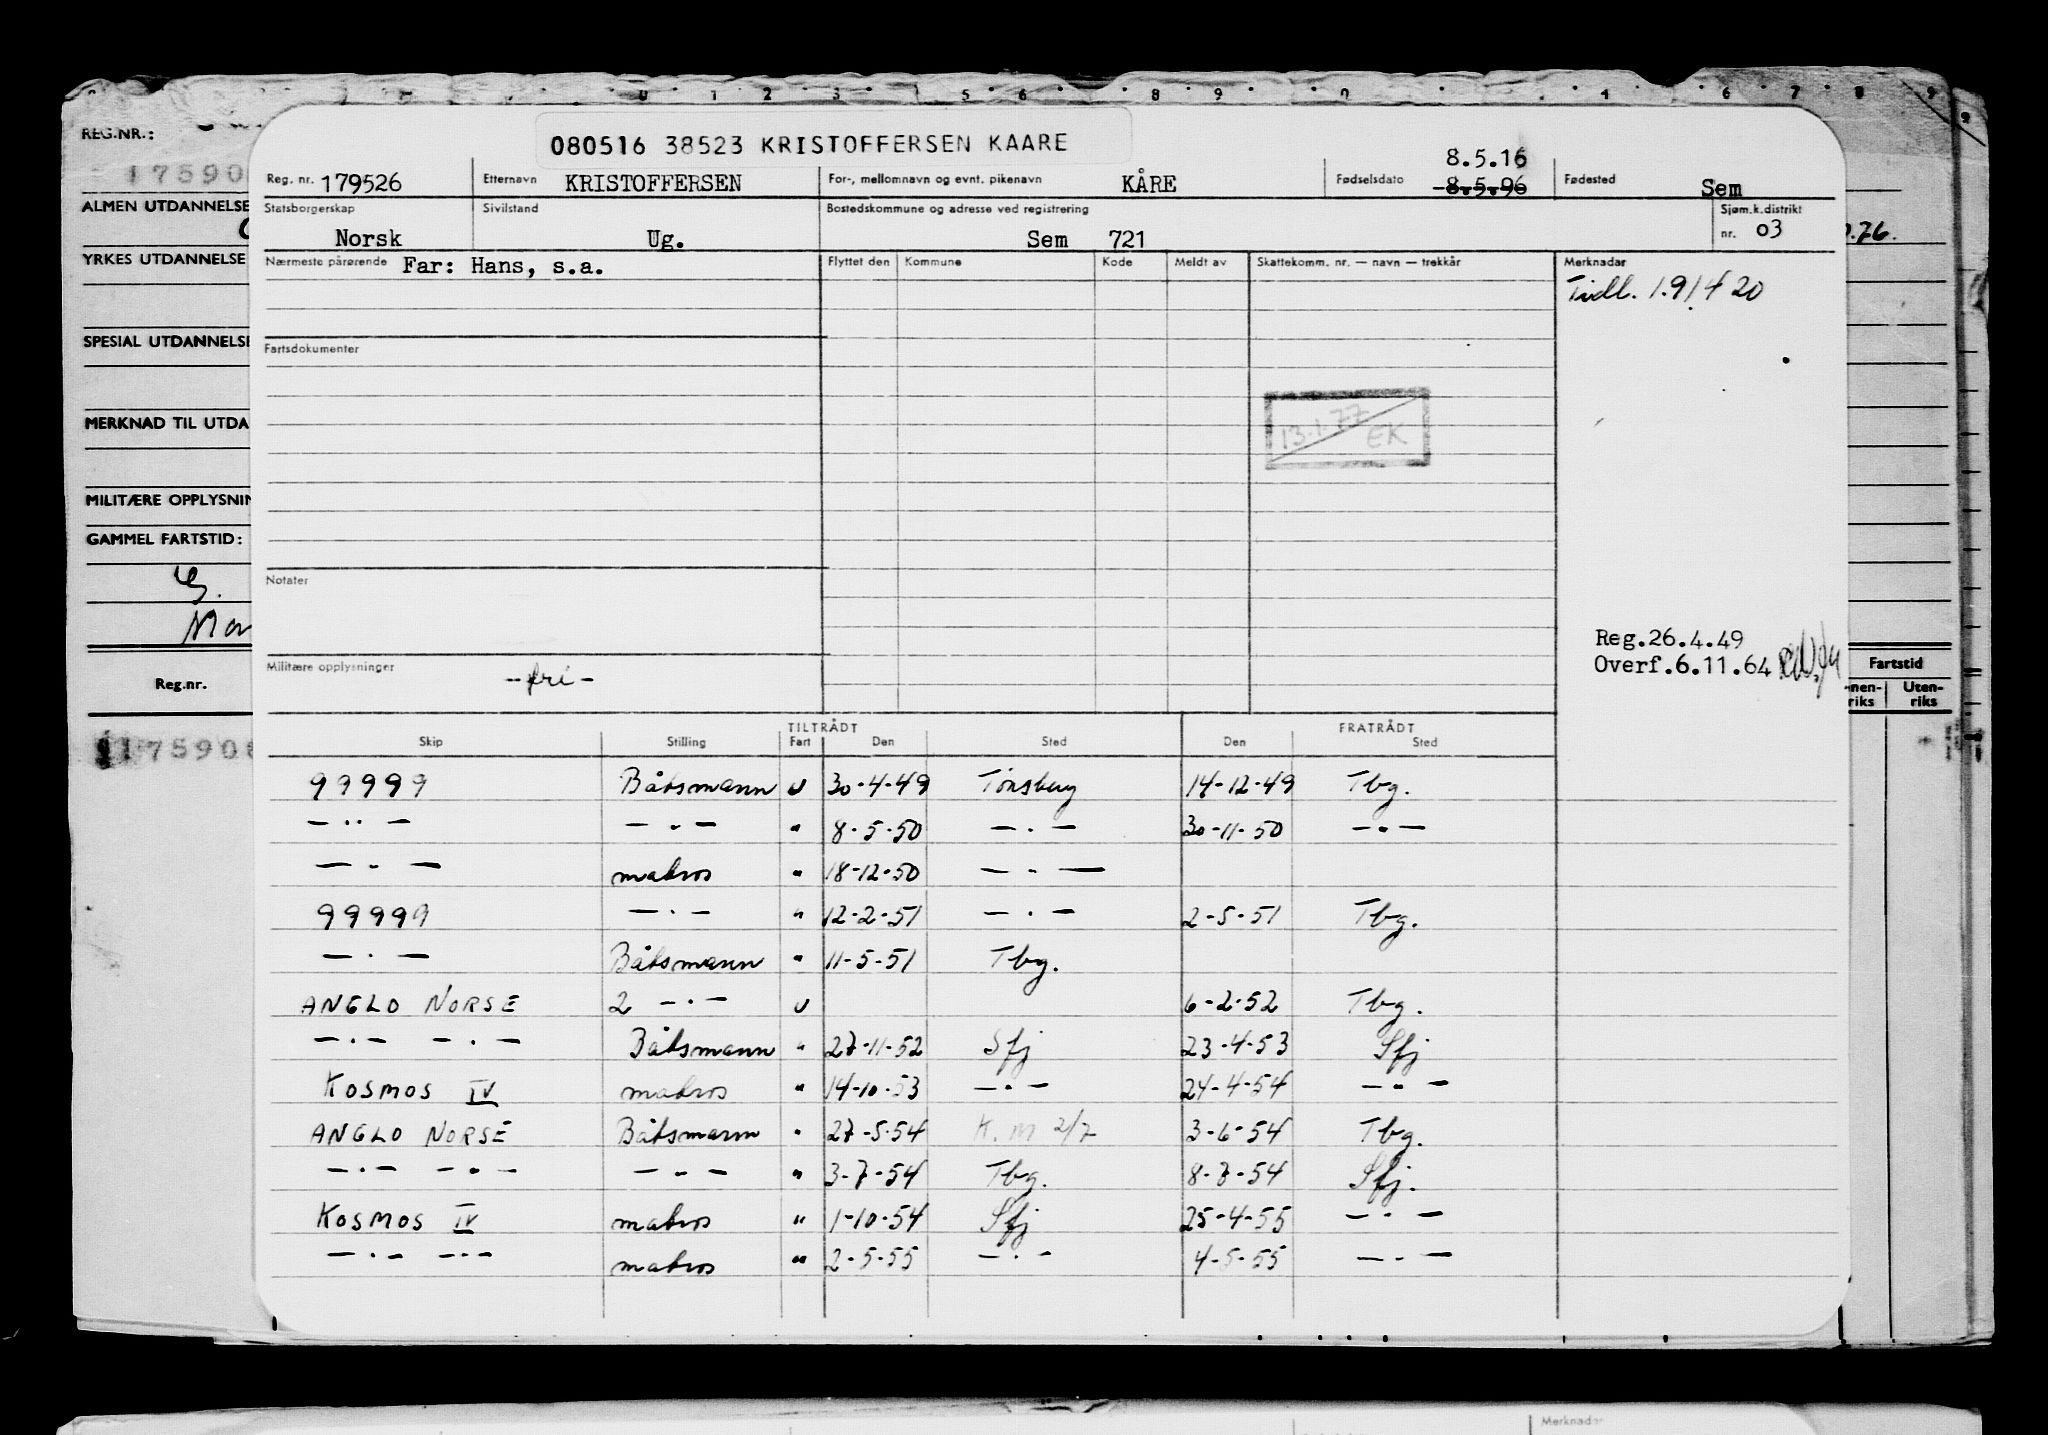 0 1 2 3 5 6 8 9 0 4 6 7 8 9
REG.NR.:
080516 38523 KRISTOFFERSEN KAARE
8.5.16
Reg. nr. 179526 Etternavn KRISTOFFERSEN For-, mellomnavn og evnt. pikenavn KÅRE Fødselsdato 8.5.96 Fødested Sem
ALMEN UTDANNELSE
Statsborgerskap Norsk Sivilstand Ug. Bostedskommune og adresse ved registrering Sem 721 Sjøm.k.distrikt nr. 03
.76.
YRKES UTDANNELSE
Nærmeste pårørende Far: Hans, s.a. Flyttet den Kommune Kode Meldt av Skattekomm. nr. — navn — trekkår Merknadar
1.9
SPESIAL UTDANNELSE
Fartsdokumenter
13.1.77
EK
MERKNAD TIL UTDA
MILITÆRE OPPLYSNIN
GAMMEL FARTSTID:
Notater
Reg.26.4.49
Overf.6.11.64
Militære opplysninger -fri-
Reg.nr.
Fartstid
nen-riks Uten-riks
TILTRÅDT FRATRÅDT
Skip Stilling Fart Den Sted Den Sted
175908
99999 Båtsmann u 30-4-49 Tønsberg 14-12-49 Tbg.
— · · — — · — " 8-5-50 — · — 30-11-50 — · —
— · — matros " 18-12-50 — · —
99999 — · — " 12-2-51 — · — 2-5-51 Tbg.
— · — Båtsmann " 11-5-51 Tbg.
ANGLO NORSE 2 — · — u 6-2-52 Tbg.
— · — — · — Båtsmann " 27-11-52 Sfj 23-4-53 Sfj
KOSMOS IV matros " 14-10-53 — · — 24-4-54 — · —
ANGLO NORSE Båtsmann " 27-5-54 K. M 2/7 3-6-54 Tbg.
— · — — · — — · — " 3-7-54 Tbg. 8-7-54 Sfj.
KOSMOS IV matros " 1-10-54 Sfj 25-4-55 — · —
— · — — · — matros " 2-5-55 — · — 4-5-55 — · —
Merknadar